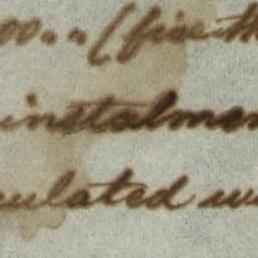 00..(five th
instalmen
culated w